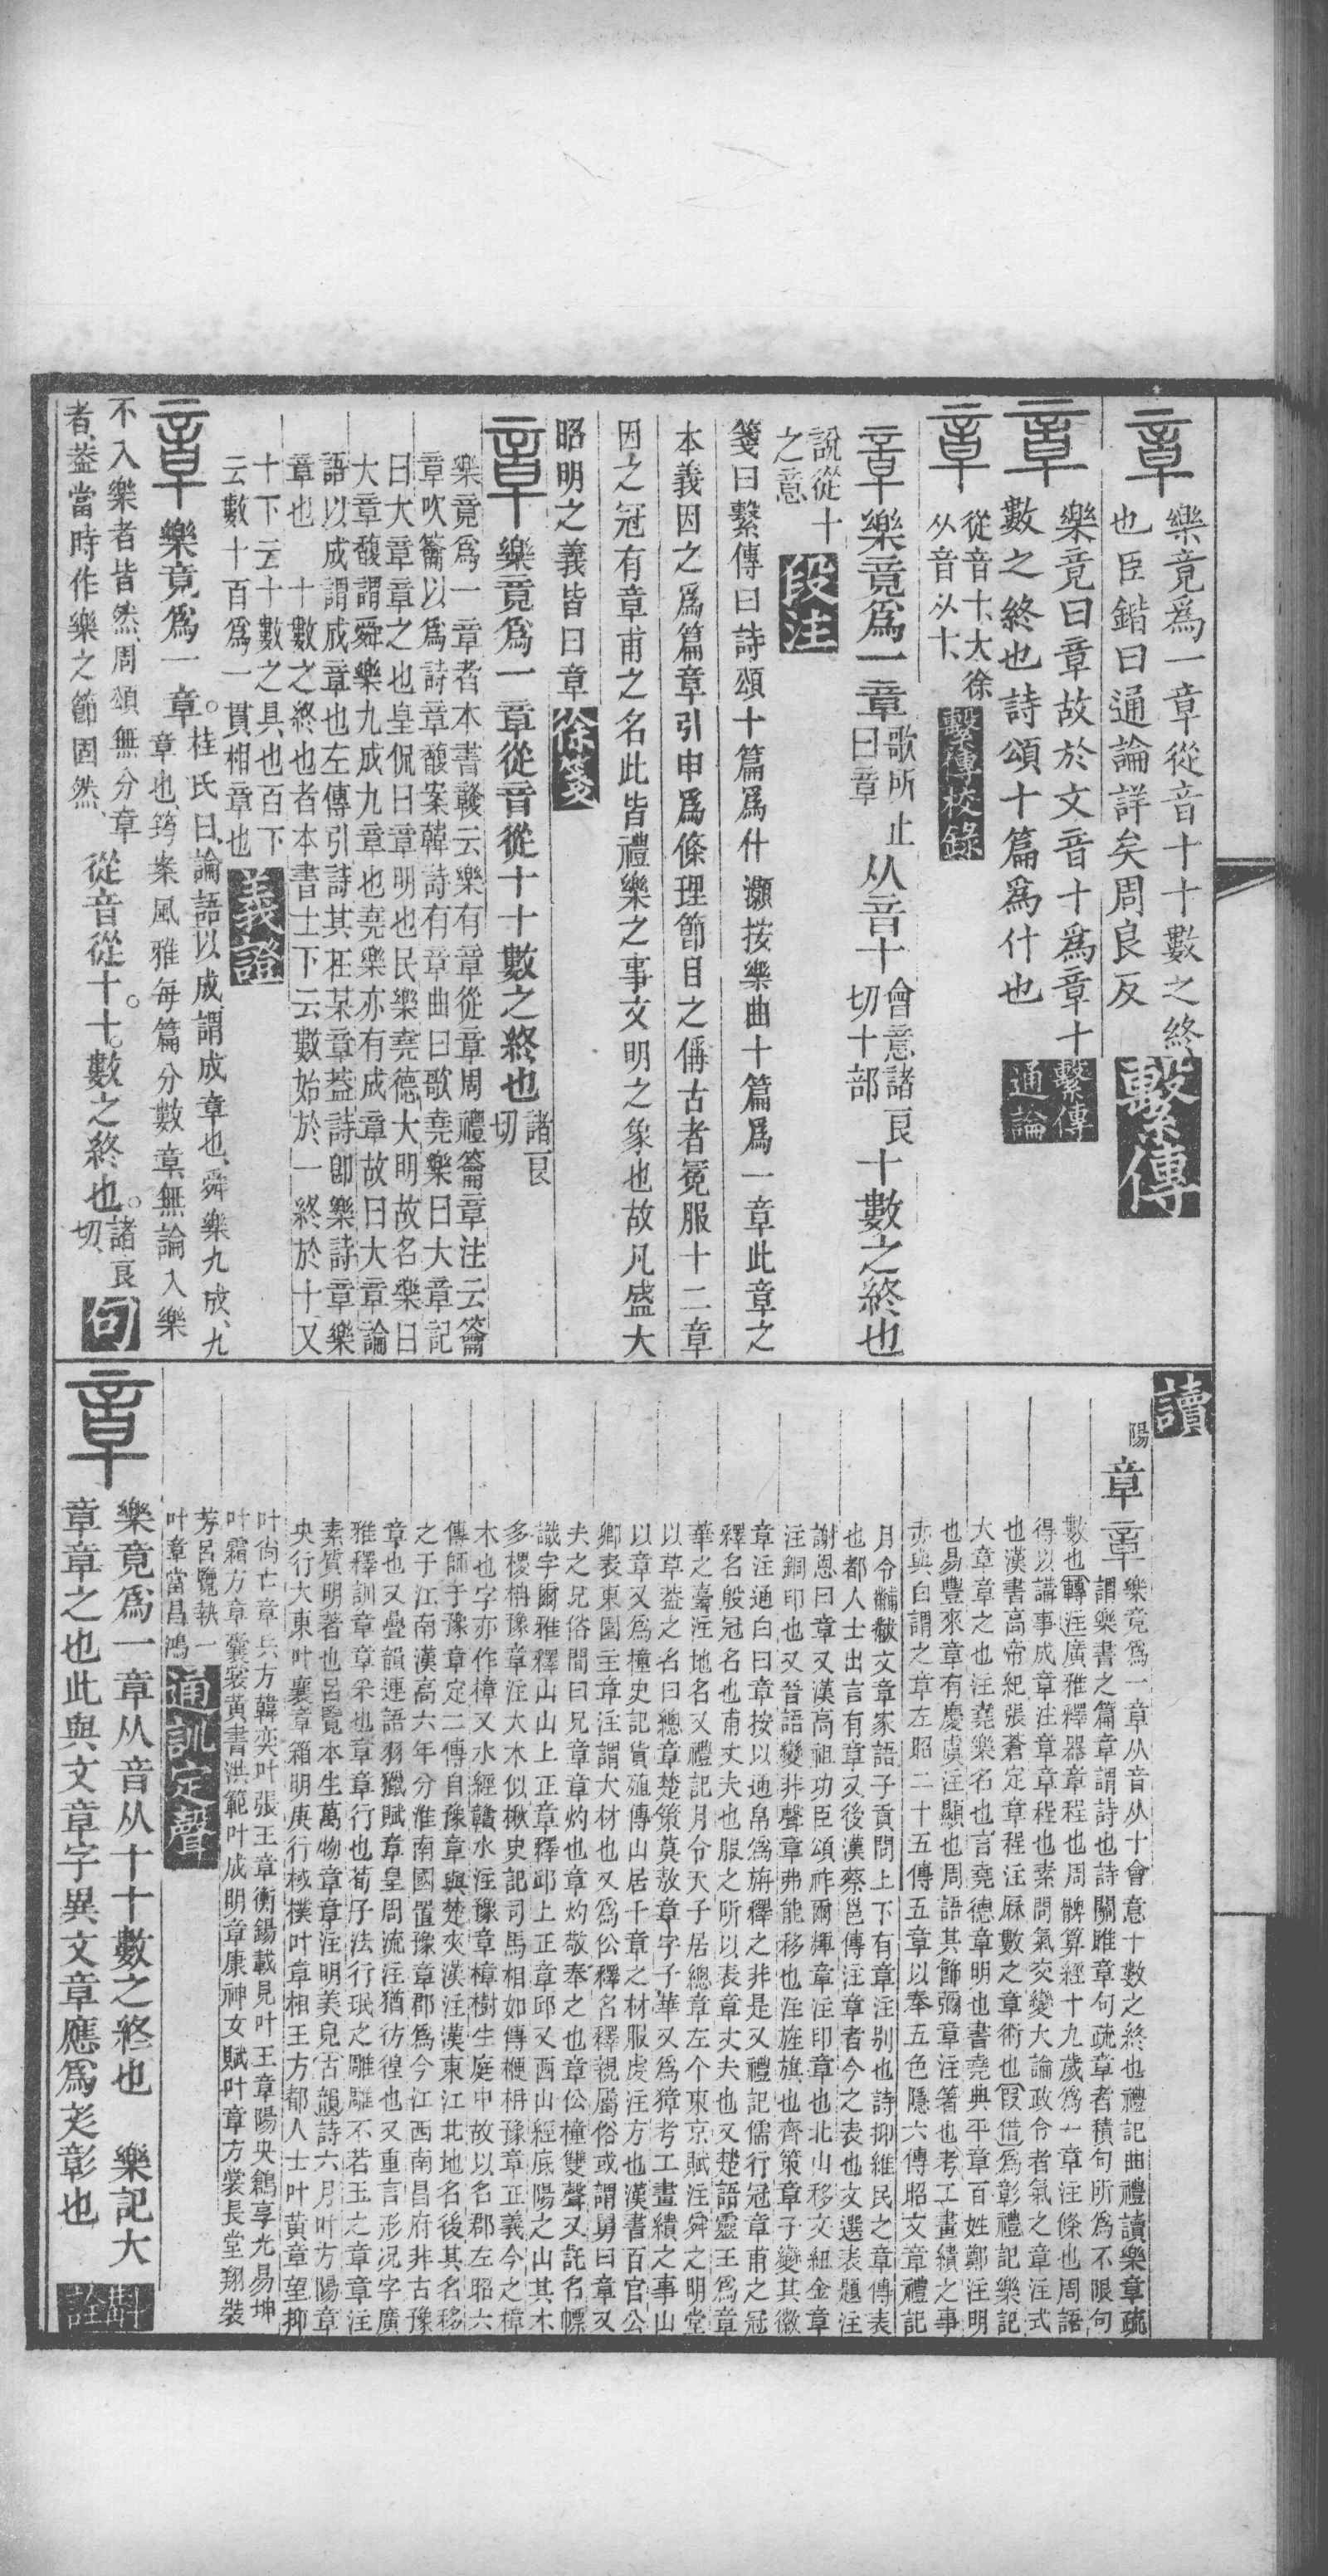 章
樂竟爲一章從音十十數之終
也臣鍇曰通論詳矣周良反
繫傳
章
樂竟曰章故於文音十爲章十
數之終也詩頌十篇爲什也
繫傳
通論
章
從音十、大徐
从音从十、
繫傳校錄
章樂竟爲一章
歌所止
曰章
从音十
會意諸良
切十部
十數之終也
說從十
之意
段注
箋曰繫傳曰詩頌十篇爲什灝按樂曲十篇爲一章此章之
本義因之爲篇章引申爲條理節目之偁古者冕服十二章
因之冠有章甫之名此皆禮樂之事文明之象也故凡盛大
昭明之義皆曰章
徐箋
章
樂竟爲一章從音從十十數之終也
諸良
切
樂竟爲一章者本書竷云樂有章從章周禮籥章注云籥
章吹籥以爲詩章馥案韓詩有章曲曰歌堯樂曰大章記
曰大章章之也皇侃曰章明也民樂堯德大明故名樂曰
大章馥謂舜樂九成九章也堯樂亦有成章故曰大章論
語以成謂成章也左傳引詩其在某章葢詩卽樂詩章樂
章也　十數之終也者本書士下云數始於一終於十又
十下云十數之具也百下
云數十百爲一貫相章也
義證
章
樂竟爲一章。
桂氏曰、論語以成、謂成章也、舜樂九成、九
章也、筠案風雅每篇分數章、無論入樂
不入樂者皆然、周頌無分章
者、葢當時作樂之節固然、
從音從十。十數之終也。
諸良
切、
句
讀
陽
章
章
樂竟爲一章从音从十會意十數之終也禮記曲禮讀樂章疏
謂樂書之篇章謂詩也詩關雎章句疏章者積句所爲不限句
數也轉注廣雅釋器章程也周髀算經十九歲爲一章注條也周語
得以講事成章注章章程也素問氣交變大論政令者氣之章注式
也漢書高帝紀張蒼定章程注厤數之章術也叚借爲彰禮記樂記
大章章之也注堯樂名也言堯德章明也書堯典平章百姓鄭注明
也易豐來章有慶虞注顯也周語其飾彌章注著也考工畫繢之事
赤與白謂之章左昭二十五傳五章以奉五色隱六傳昭文章禮記
月令黼黻文章家語子貢問上下有章注别也詩抑維民之章傳表
也都人士出言有章又後漢蔡邕傳注章者今之表也文選表題注
謝恩曰章又漢高祖功臣頌祚爾煇章注印章也北山移文紐金章
注銅印也又晉語變非聲章弗能移也注旌旗也齊策章子變其徽
章注通白曰章按以通帛爲旃釋之非是又禮記儒行冠章甫之冠
釋名殷冠名也甫丈夫也服之所以表章丈夫也又楚語靈王爲章
華之臺注地名又禮記月令天子居總章左个東京賦注舜之明堂
以草葢之名曰總章楚策莫敖章字子華又爲獐考工畫繢之事山
以章又爲橦史記貨殖傳山居千章之材服虔注方也漢書百官公
卿表東園主章注謂大材也又爲伀釋名釋親屬俗或謂舅曰章又
夫之兄俗間曰兄章章灼也章灼敬奉之也章伀橦雙聲又託名幖
識字爾雅釋山山上正章釋邱上正章邱又西山經底陽之山其木
多㮨枏豫章注大木似楸史記司馬相如傳楩枏豫章正義今之樟
木也字亦作樟又水經贛水注豫章樟樹生庭中故以名郡左昭六
傳師于豫章定二傳自豫章與楚夾漢注漢東江北地名後其名移
之于江南漢高六年分淮南國置豫章郡爲今江西南昌府非古豫
章也又疊韻連語羽獵賦章皇周流注猶彷徨也又重言形况字廣
雅釋訓章章采也章章行也荀子法行珉之雕雕不若玉之章章注
素質明著也呂覽本生萬物章章注明美皃古韻詩六月叶方陽章
央行大東叶襄章箱明庚行棫樸叶章相王方都人士叶黃章望抑
叶尙亡章兵方韓奕叶張王章衡鍚載見叶王章陽央鶬享光易坤
叶霜方章囊裳黃書洪範叶成明章康神女賦叶章方裳長堂翔裝
芳呂覽執一
叶章當昌鴻
通訓定聲
章
樂竟爲一章从音从十十數之終也　樂記大
章章之也此與文章字異文章應爲㣋彰也
斠詮